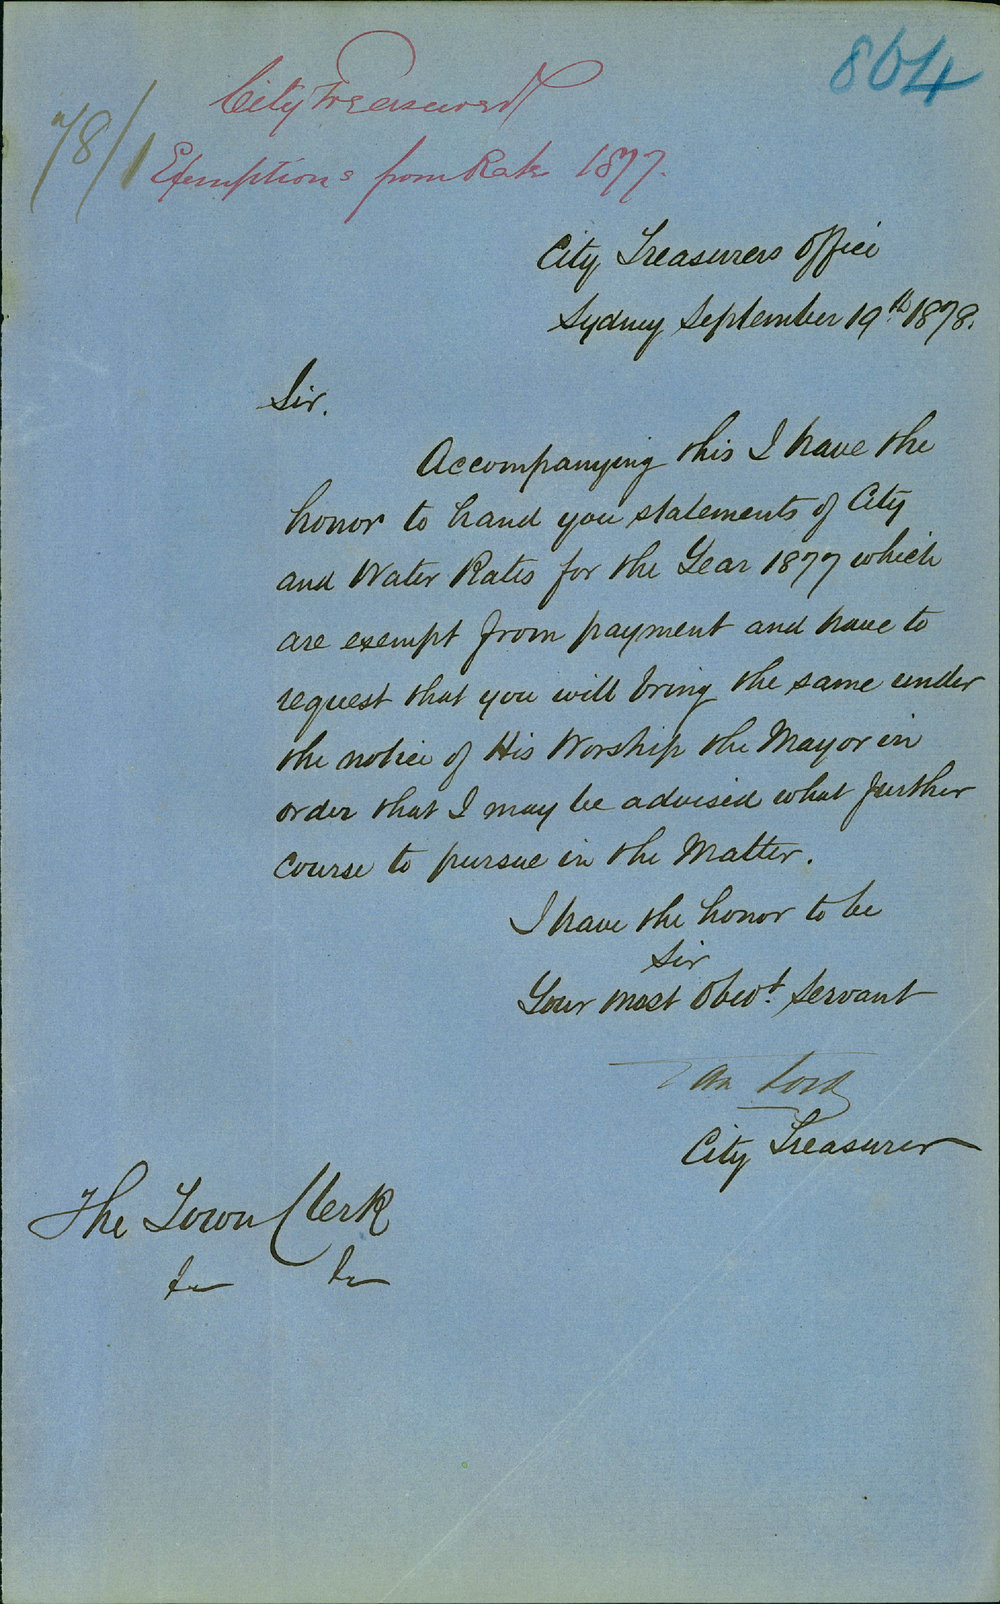 864
78/1
City Treasurer
Exemptions from Rates 1877.
City Treasurers Office
Sydney September 19th 1878.
Sir.
Accompanying this I have the
honor to hand you statements of City
and Water Rates for the Year 1877 which
are exempt from payment and have to
request that you will bring the same under
the notice of His Worship the Mayor in
order that I may be advised what further
course to pursue in the Matter.
I have the honor to be
Sir
Your most Obedt. Servant
Lord
City Treasurer
The Town Clerk